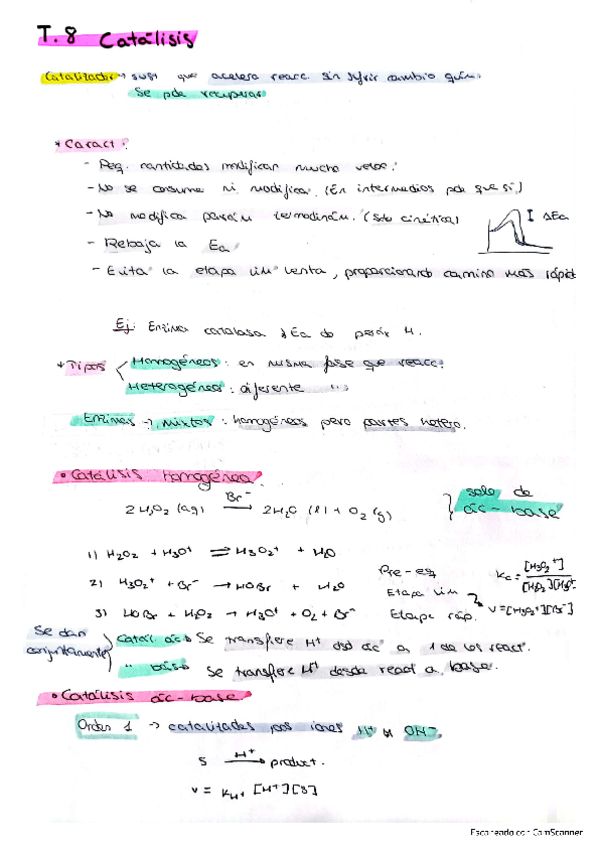 T. 8 Catálisis
Catalizador → sust que acelera reacc. sin sufrir cambio quím.
Se pde recuperar
* Caract:
- Peq. cantidades modifican mucho veloc.
- No se consume ni modifica. (En intermedios pde que sí)
- No modifica parám termodinám. (solo cinética)
I ΔEa
- Rebaja la Ea
- Evita la etapa lim lenta, proporcionando camino más rápid
Ej: Enzima catalasa ↓Ea do peróx H.
* Tipos
Homogéneos: en misma fase que reacc.
Heterogéneo: diferente "
Enzimas → mixtos: homogéneos pero partes hetero.
• Catálisis homogénea.
2 H2O2 (aq) —Br⁻→ 2H2O (l) + O2 (g)
} solo de ác-base
1) H2O2 + H3O⁺ ⇌ H3O2⁺ + H2O
Pre-eq
Kc = [H3O2⁺] / [H2O2][H3O⁺]
2) H3O2⁺ + Br⁻ → HOBr + H2O
Etapa lim
v = [H3O2⁺][Br⁻]
3) HOBr + H2O2 → H3O⁺ + O2 + Br⁻
Etapa ráp.
Se dan conjuntamente
Catál. ác → Se transfiere H⁺ dsd ác a 1 de los react.
" básica Se transfiere H⁺ desde react a base.
• Catálisis ác-base.
Orden 1 → catalizadas por iones H⁺ u OH⁻.
S —H⁺→ product.
v = KH+ [H⁺][S]
Escaneado con CamScanner